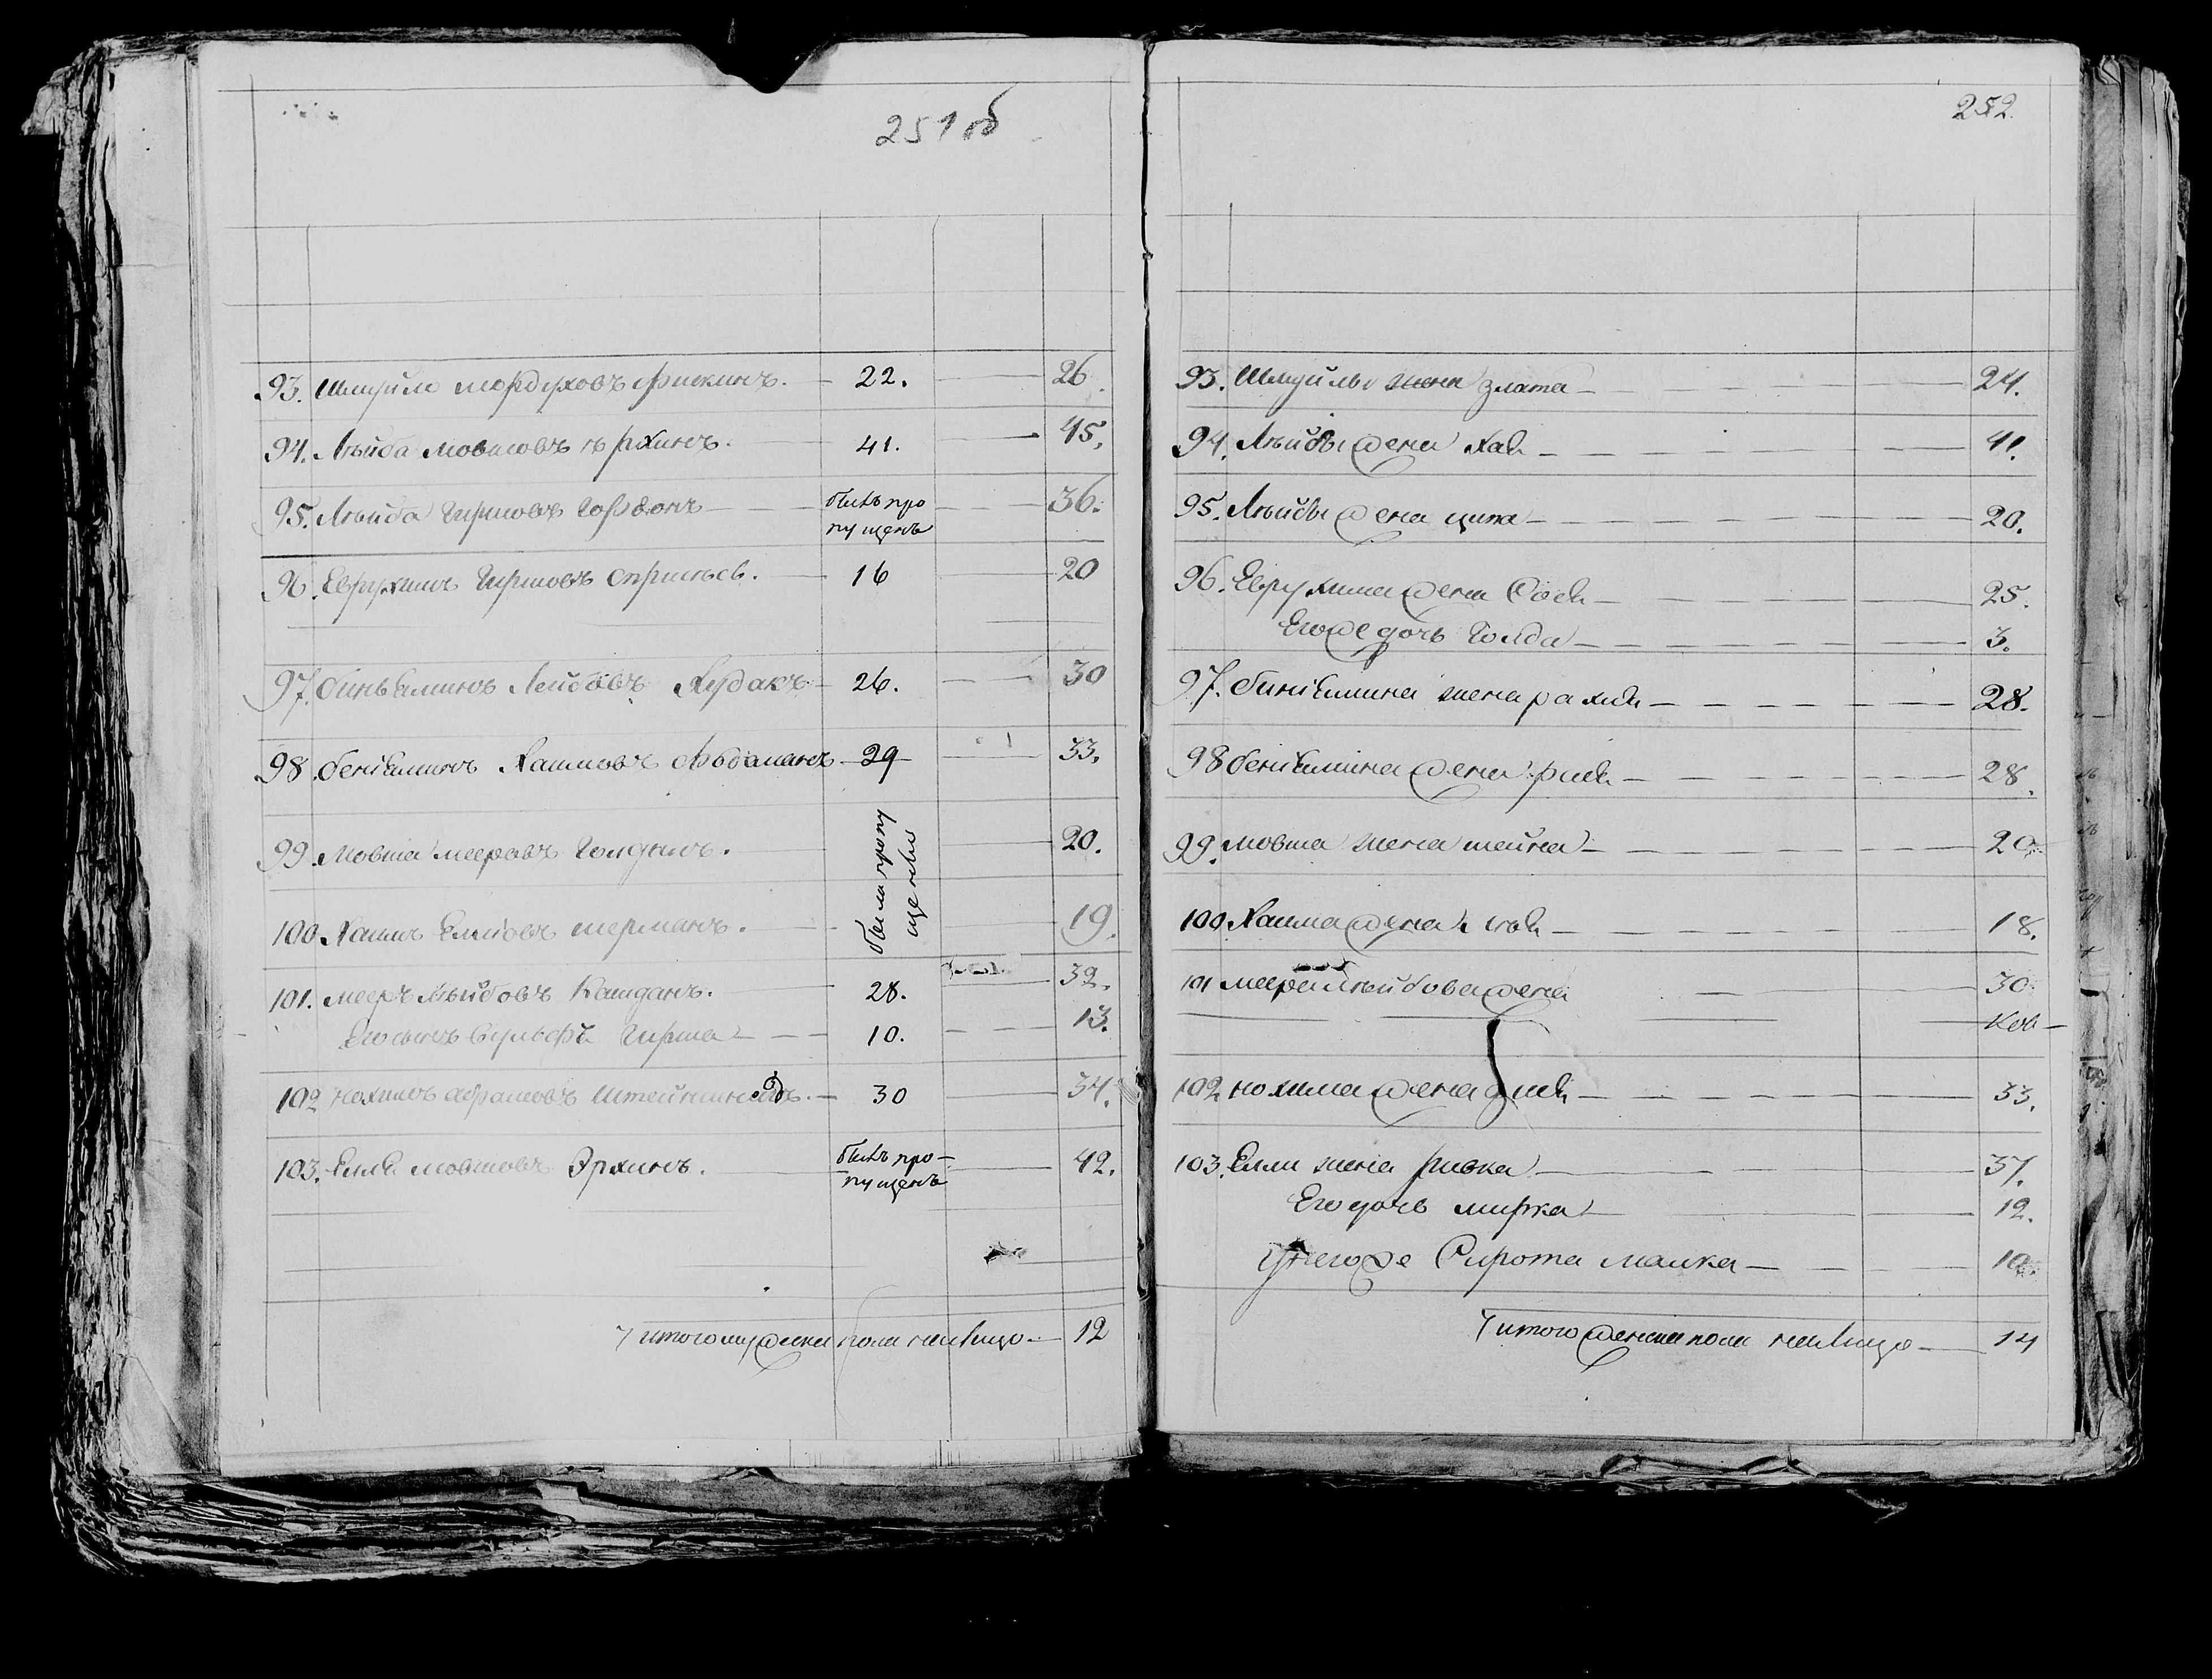 251 об
93. Шмуйло Мордуховъ Фискинъ. — 22. — 26
94. Лѣйба Мовшовъ — 41. — 45.
95. Лѣйба Гиршовъ Гордонъ — былъ про — 36.
пущенъ
96. Еврухимъ Гиршовъ — 16 — 20
97. Биньяминъ Лейбовъ Худакъ — 26. — 30
98. Беніяминъ Хаимовъ — 29 — 33.
99. Мовша Мееровъ Голдинъ. — были пропу — 20.
щены
100. Хаимъ Еліовъ Шерманъ. — 19.
101. Мееръ Лѣйбовъ Кашданъ. — 28. — 32.
Его сынъ Вульфъ Гирша — 10. — 13.
102 Нохимъ Абрамовъ — 30 — 34.
103. Еля Мовшовъ Эрхинъ. — былъ про- — 42.
пущенъ
Итого мужеска пола налицо — 12
252.
93. Шмуйлы жена Злата — 24.
94. Лѣйбы жена Хая — 41.
95. Лѣйбы жена Ципа — 20.
96. Еврухима жена Сося — 25.
Его же дочь Голда — 3.
97. Биніямина жена Рахля — 28.
98 Беніямина жена — 28.
99. Мовша жена Шейна — 20
100 Хаима жена — 18.
101 Меера Лѣйбова жена — 30
102 Нохима жена — 33.
103. Елли жена Ривка — 37.
Его дочь Мирка — 12.
У него же Сирота Малка — 10.
Итого женска пола налицо — 14